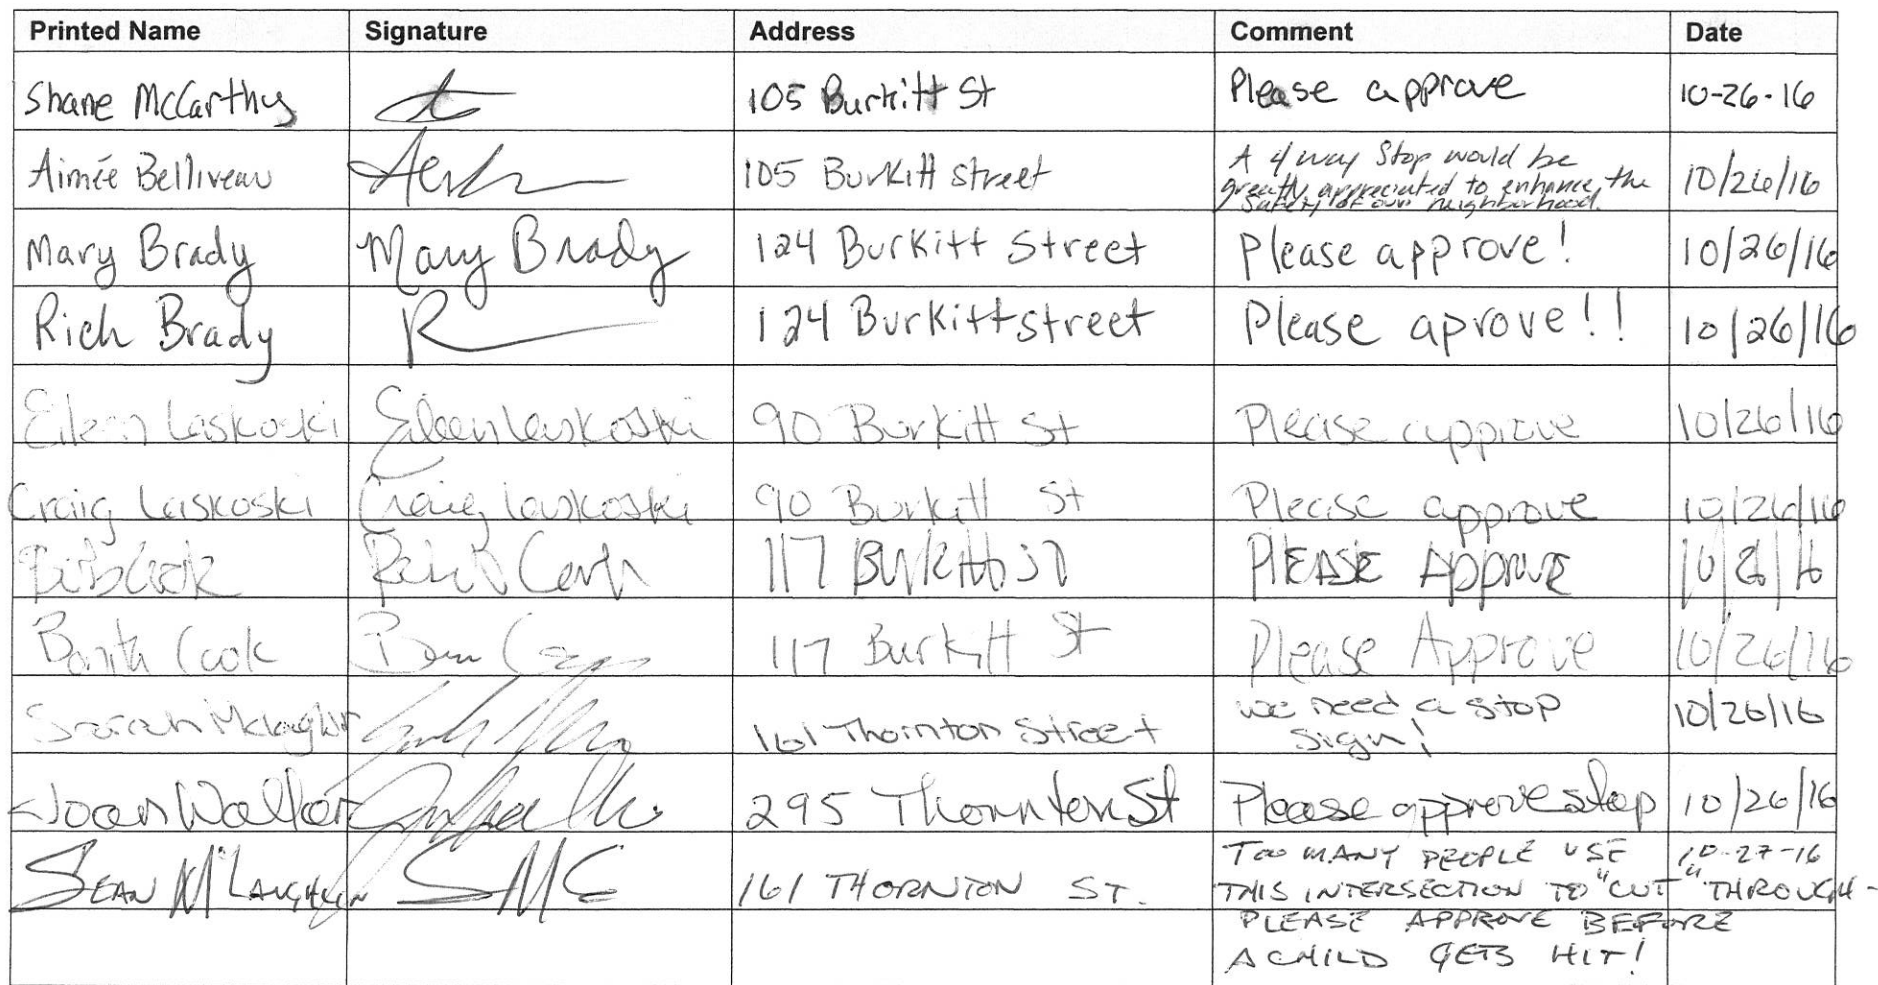 Printed Name Signature Address Comment Date
Shane McCarthy 105 Burkitt St Please approve 10-26-16
Aimée Belliveau 105 Burkitt street A 4 way Stop would be
greatly appreciated to enhance the
safety of our neighborhood. 10/26/16
Mary Brady Mary Brady 124 Burkitt Street Please approve! 10/26/16
Rich Brady R 124 Burkitt street Please aprove!! 10/26/16
Eileen Laskoski Eileen Laskoski 90 Burkitt St Please approve 10/26/16
Craig Laskoski Craig Laskoski 90 Burkitt St Please approve 10/26/16
Bob Cook 117 Burkitt ST PLEASE Approve
Bonita Cook 117 Burkitt St Please Approve 10/26/16
Sarah 161 Thornton Street we need a stop
sign! 10/26/16
Joan Walker 295 Thornton St Please approve stop 10/26/16
SEAN McLAUGHLIN SMC 161 THORNTON ST. TOO MANY PEOPLE USE 10-27-16
THIS INTERSECTION TO "CUT" THROUGH -
PLEASE APPROVE BEFORE
A CHILD GETS HIT!